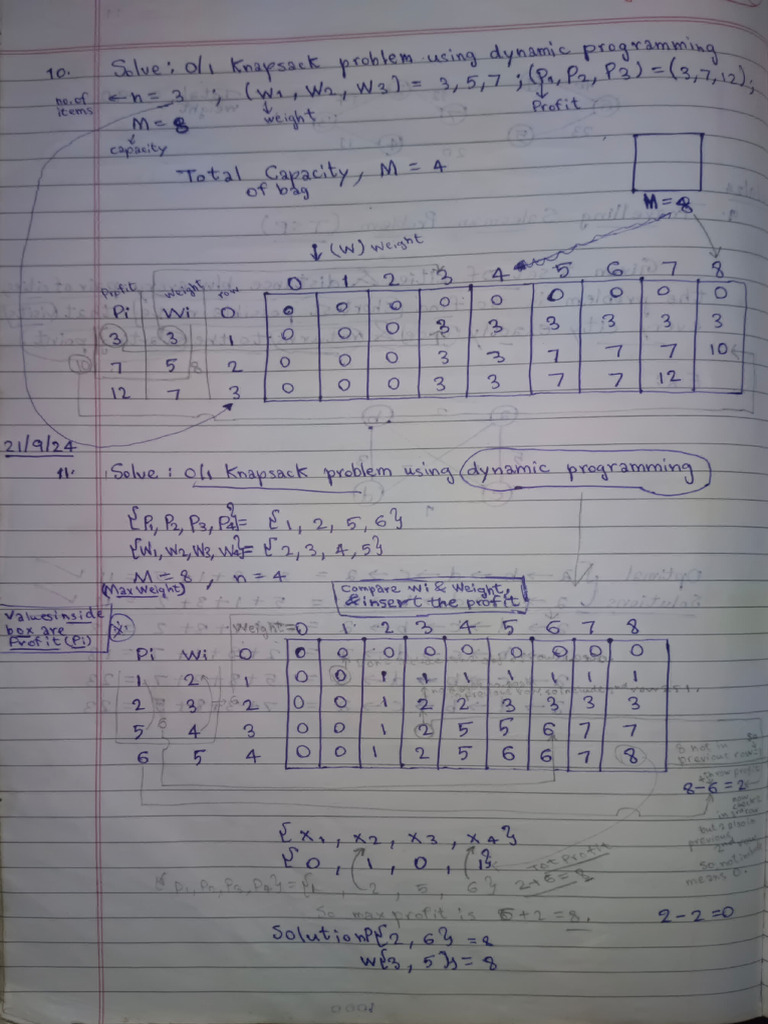 10. Solve : 0/1 Knapsack problem using dynamic programming
no. of items ← n = 3 ; (W1, W2, W3) = 3, 5, 7 ; (P1, P2, P3) = (3, 7, 12);
M = 8 weight Profit
capacity
Total Capacity, M = 4
of bag
M = 8
↓ (W) Weight
0 1 2 3 4 5 6 7 8
Profit Weight row
Pi Wi 0 0 0 0 0 0 0 0 0 0
3 3 1 0 0 0 3 3 3 3 3 3
7 5 2 0 0 0 3 3 7 7 7 10
12 7 3 0 0 0 3 3 7 7 12
21/9/24
11. Solve : 0/1 Knapsack problem using dynamic programming
{P1, P2, P3, P4} = {1, 2, 5, 6}
{W1, W2, W3, W4} = {2, 3, 4, 5}
M = 8 , n = 4
(Max Weight)
Compare Wi & Weight,
& insert the profit
Values inside
box are
Profit (Pi)
Weight = 0 1 2 3 4 5 6 7 8
Pi Wi 0 0 0 0 0 0 0 0 0 0
1 2 1 0 0 1 1 1 1 1 1 1
2 3 2 0 0 1 2 2 3 3 3 3
5 4 3 0 0 1 2 5 5 6 7 7
6 5 4 0 0 1 2 5 6 6 7 8
8 not in
previous row
8 - 6 = 2
but 2 also in
previous
So not included
means 0.
{x1, x2, x3, x4}
{0, 1, 0, 1}
Tot Profit
2+6=8
{P1, P2, P3, P4} = {1, 2, 5, 6}
So max profit is 6+2 = 8.
2 - 2 = 0
Solution P{2, 6} = 8
W{3, 5} = 8